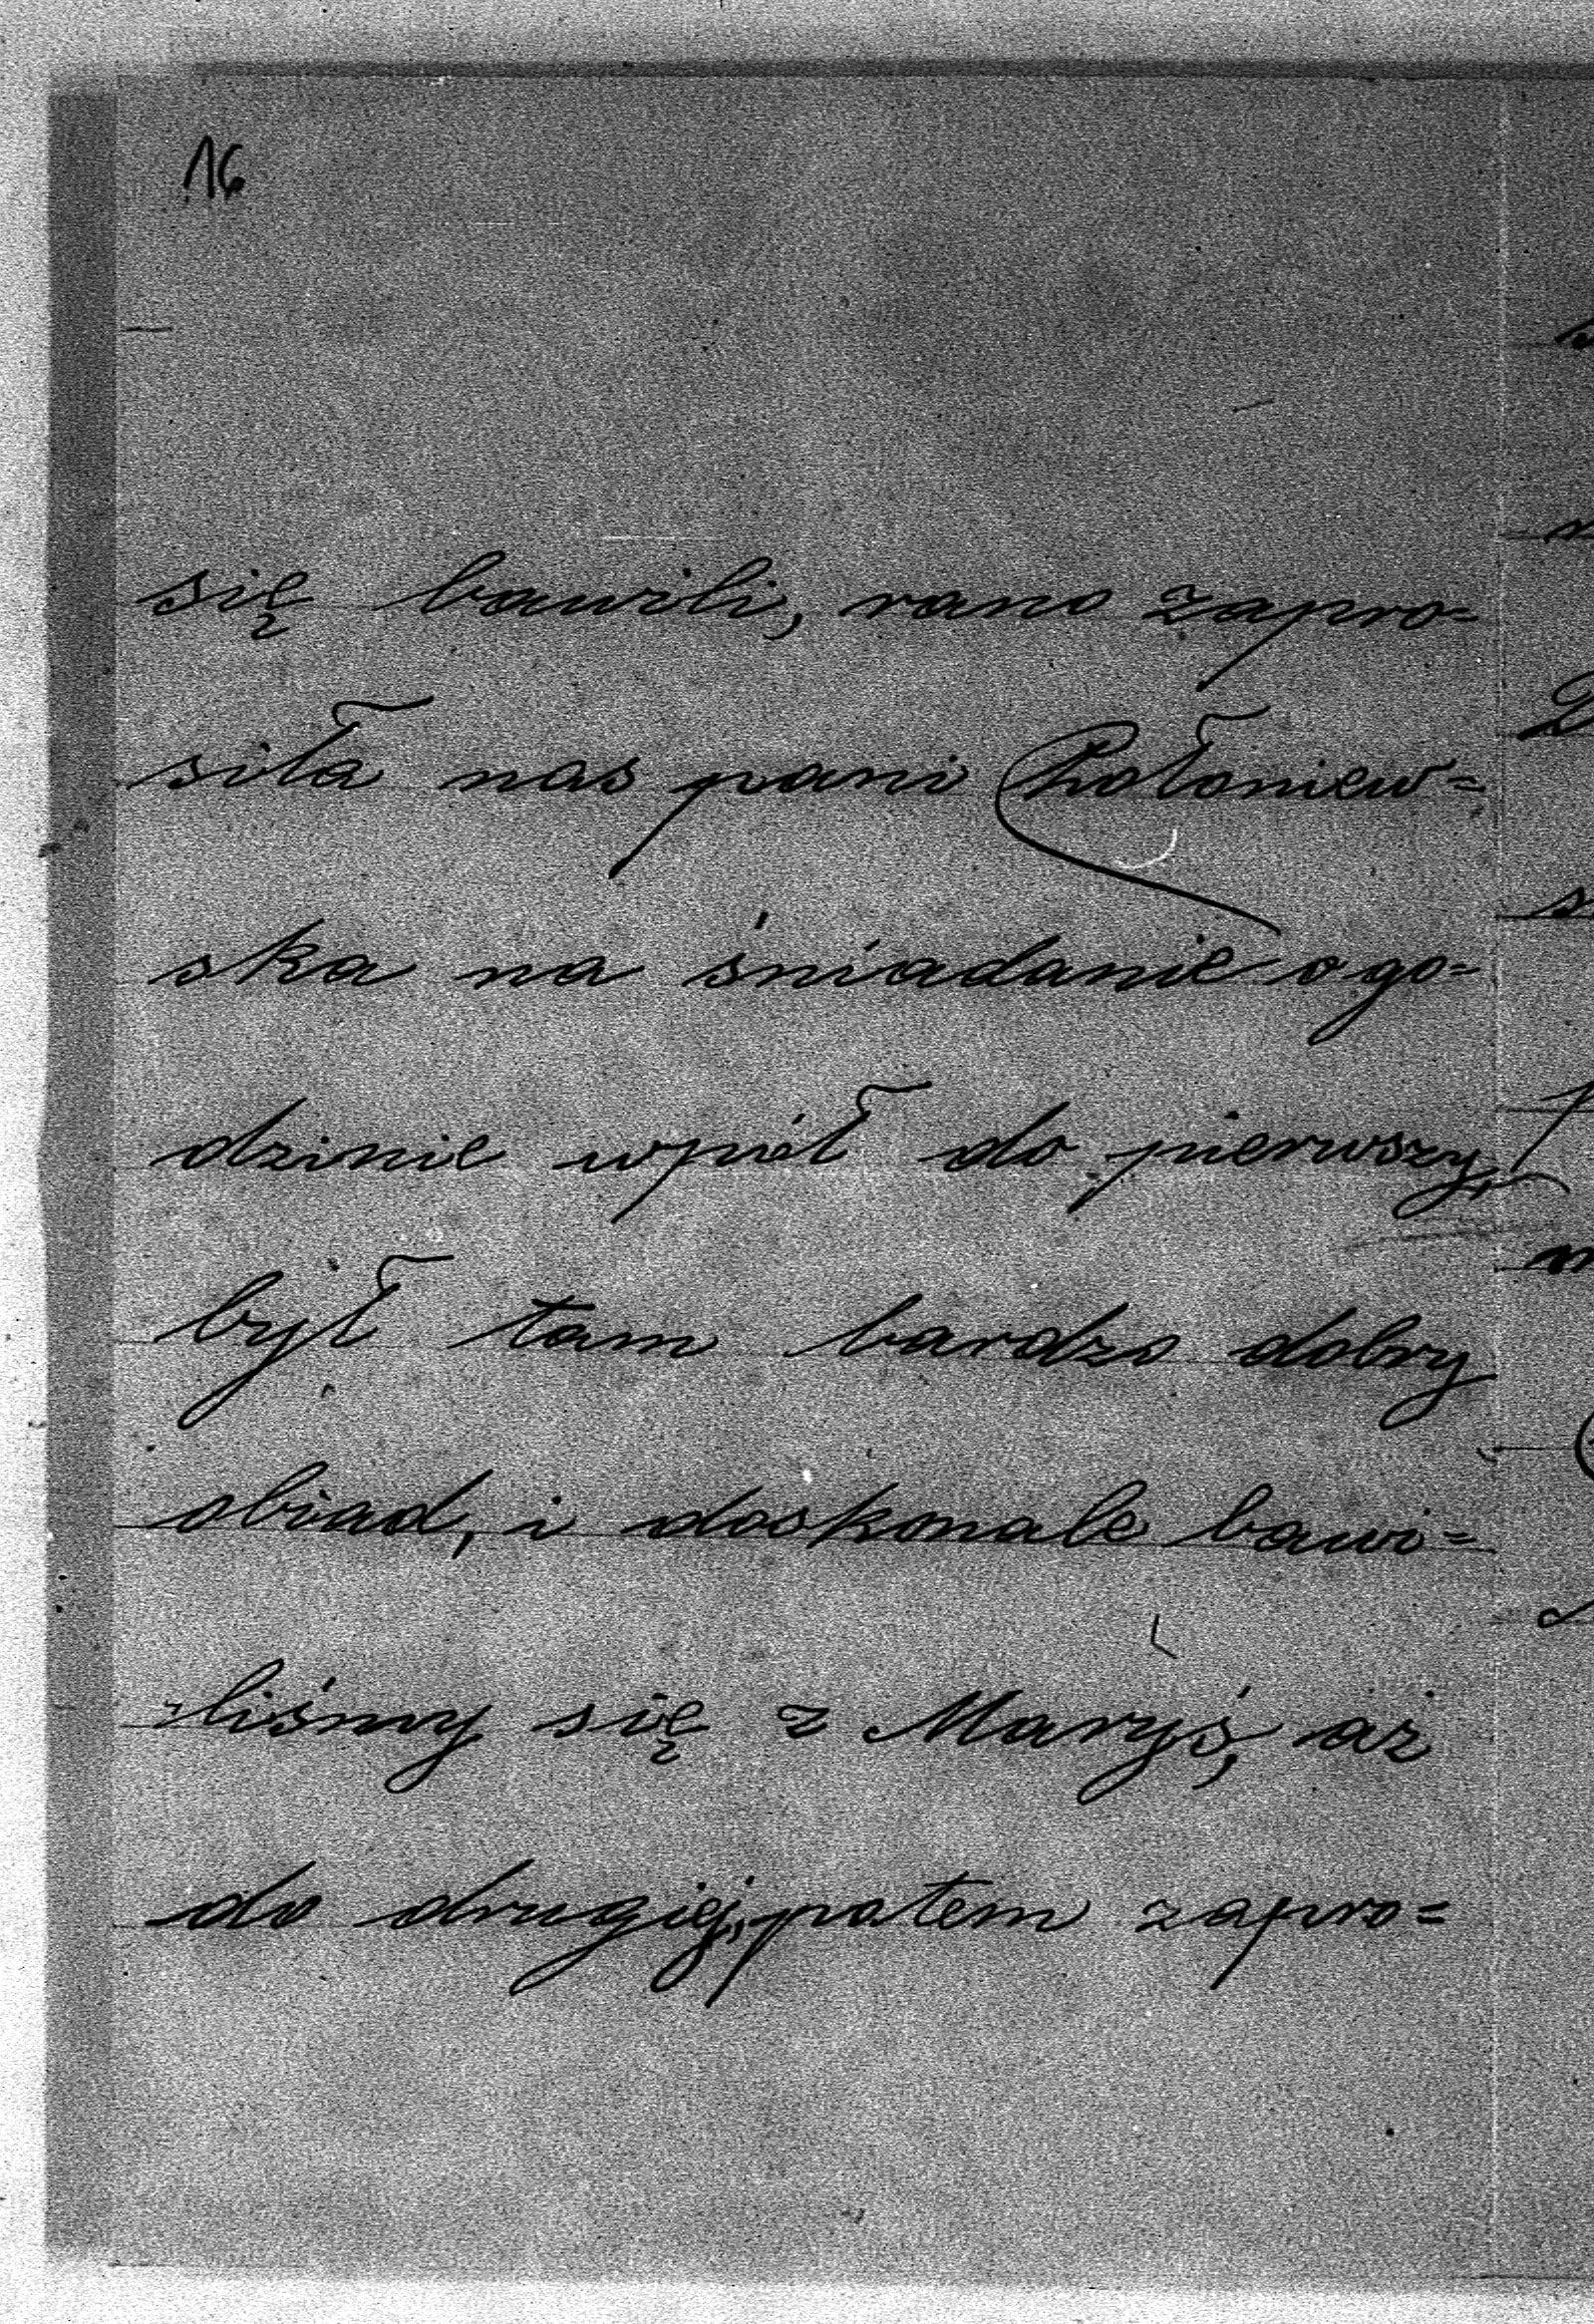 16
się bawili, rano zapro=
siła nas pani Chołoniew=
ska na śniadanie o go=
dzinie wpół do pierwszy,
był tam bardzo dobry
obiad, i doskonale bawi=
liśmy się z Maryś, aż
do drugiej, potem zapro=